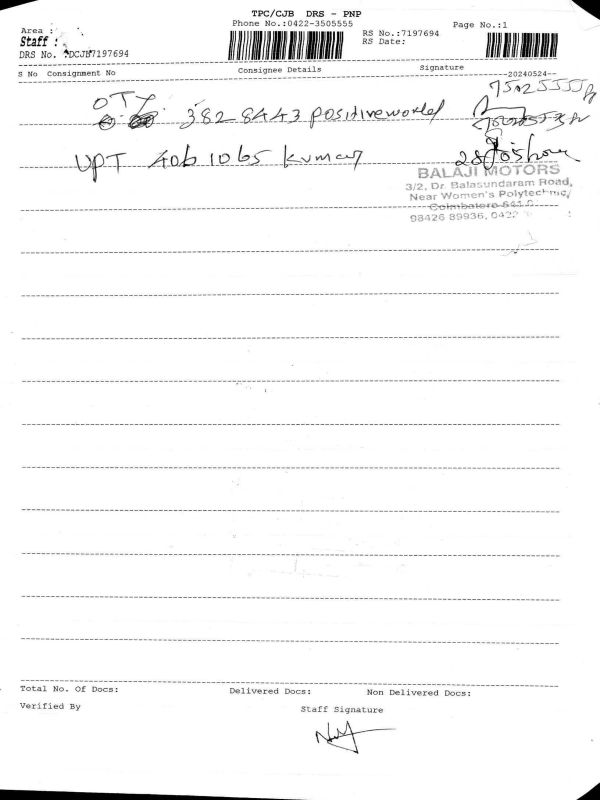 TPC/CJB DRS - PNP
Area : Phone No.:0422-3505555 Page No.:1
Staff : RS No.:7197694
DRS No. DCJB7197694 RS Date:
S No Consignment No Consignee Details Signature
--20240524--
OTY 3828443 positiveworld
UPT 4061065 Kumar
BALAJI MOTORS
3/2, Dr. Balasundaram Road,
Near Women's Polytechnic,
Coimbatore
98426 89936, 0422
Total No. Of Docs: Delivered Docs: Non Delivered Docs:
Verified By Staff Signature